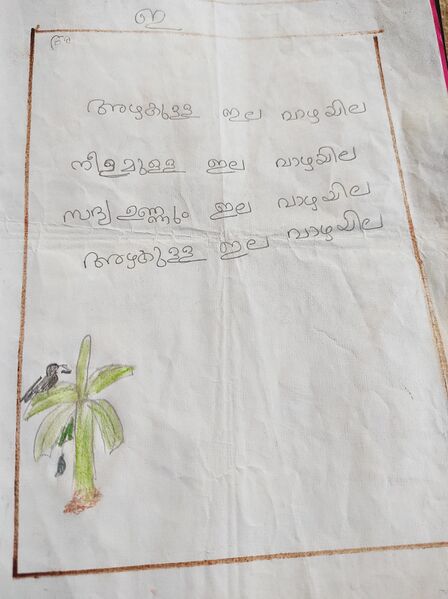 ഇ
അഴകുള്ള ഇല വാഴയില
നീളമുള്ള ഇല വാഴയില
സദ്യ ഉണ്ണും ഇല വാഴയില
അഴകുള്ള ഇല വാഴയില